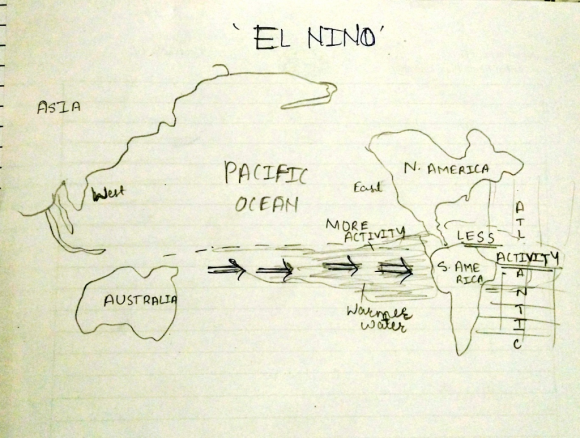 'EL NINO'
ASIA
West
PACIFIC
OCEAN
East
N. AMERICA
MORE
ACTIVITY
LESS
ACTIVITY
ATLANTIC
S. AME
RICA
AUSTRALIA
Warmer
water